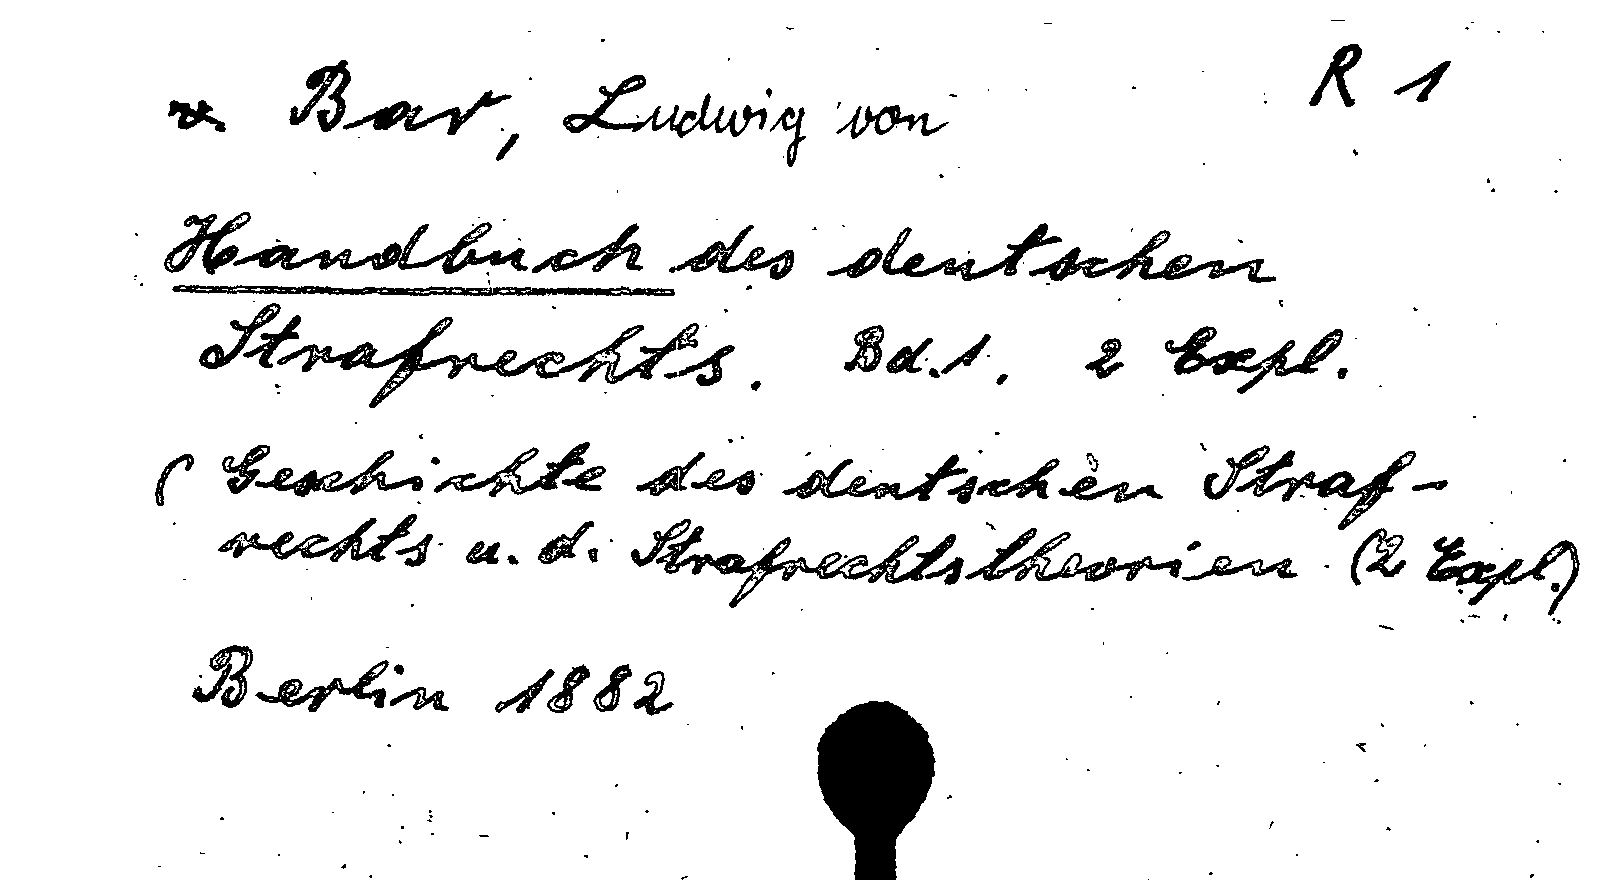 v. Bar, Ludwig von
R 1
Handbuch des deutschen
Strafrechts. Bd.1. 2 Expl.
( Geschichte des deutschen Straf-
rechts u. d. Strafrechtstheorien (2 Expl.)
Berlin 1882